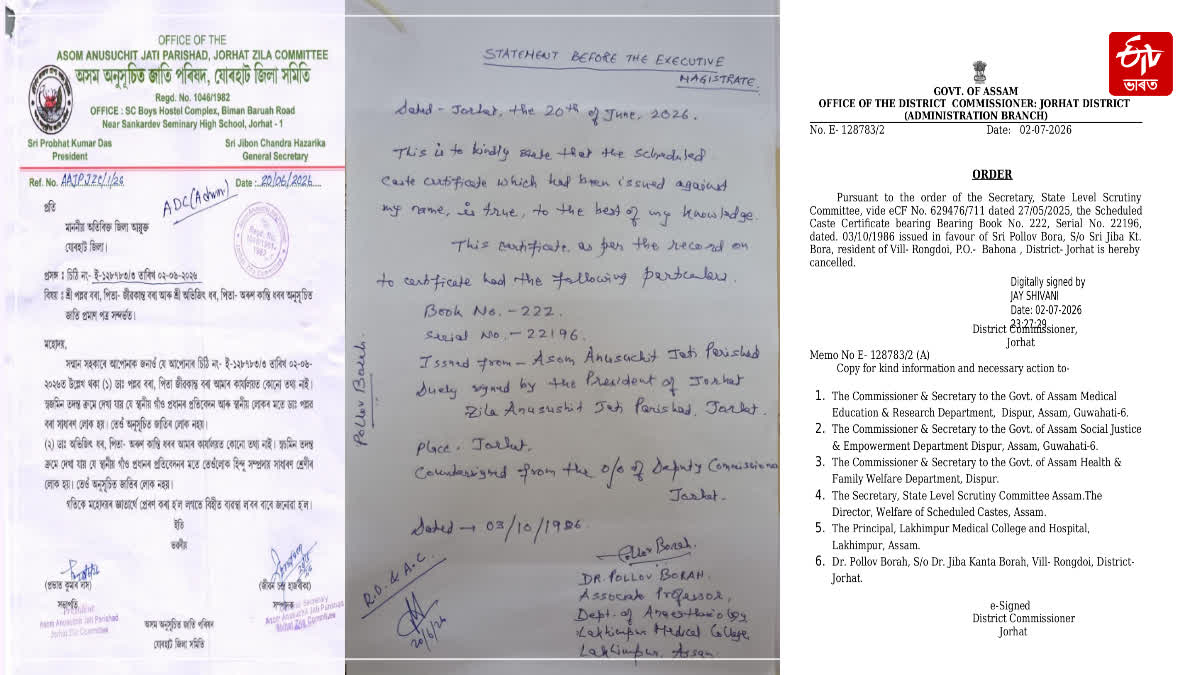 OFFICE OF THE
ASOM ANUSUCHIT JATI PARISHAD, JORHAT ZILA COMMITTEE
অসম অনুসূচিত জাতি পৰিষদ, যোৰহাট জিলা সমিতি
Regd. No. 1046/1982
OFFICE : SC Boys Hostel Complex, Biman Baruah Road
Near Sankardev Seminary High School, Jorhat - 1
Sri Probhat Kumar Das
President
Sri Jibon Chandra Hazarika
General Secretary
Ref. No. AAJPJZC/1/26
Date : 20/06/2026
ADC(Admn)
প্ৰতি
মাননীয় অতিৰিক্ত জিলা আয়ুক্ত
যোৰহাট জিলা।
প্ৰসঙ্গ : চিঠি নং- ই-১২৮৭৮৩/৩ তাৰিখ ০২-০৬-২০২৬
বিষয় : শ্ৰী পল্লৱ বৰা, পিতা- জীৱকান্ত বৰা আৰু শ্ৰী অভিজিৎ ধৰ, পিতা- অৰুণ কান্তি ধৰৰ অনুসূচিত
জাতি প্ৰমাণ পত্ৰ সন্দৰ্ভত।
মহোদয়,
সন্মান সহকাৰে আপোনাক জনাওঁ যে আপোনাৰ চিঠি নং- ই-১২৮৭৮৩/৩ তাৰিখ ০২-০৬-
২০২৬ত উল্লেখ থকা (১) ডাঃ পল্লৱ বৰা, পিতা জীৱকান্ত বৰা আমাৰ কাৰ্যালয়ত কোনো তথ্য নাই।
তদন্ত ক্ৰমে দেখা যায় যে স্থানীয় গাঁও প্ৰধানৰ প্ৰতিবেদন আৰু স্থানীয় লোকৰ মতে ডাঃ পল্লৱ
বৰা সাধাৰণ লোক হয়। তেওঁ অনুসূচিত জাতিৰ লোক নহয়।
(২) ডাঃ অভিজিৎ ধৰ, পিতা- অৰুণ কান্তি ধৰ আমাৰ কাৰ্যালয়ত কোনো তথ্য নাই। তদন্ত
ক্ৰমে দেখা যায় যে স্থানীয় গাঁও প্ৰধানৰ প্ৰতিবেদনৰ মতে তেওঁলোক হিন্দু সম্প্ৰদায় সাধাৰণ শ্ৰেণীৰ
লোক হয়। তেওঁ অনুসূচিত জাতিৰ লোক নহয়।
গতিকে মহোদয়ৰ জ্ঞাতাৰ্থে প্ৰেৰণ কৰা হ'ল লগতে বিহীত ব্যৱস্থা ল'বৰ বাবে জনোৱা হ'ল।
ইতি
ভৱদীয়
(প্ৰভাত কুমাৰ দাস)
সভাপতি
President
Asom Anusuchit Jati Parishad
Jorhat Zila Committee
(জীৱন চন্দ্ৰ হাজৰিকা)
সম্পাদক
Secretary
Asom Anusuchit Jati Parishad
Jorhat Zila Committee
অসম অনুসূচিত জাতি পৰিষদ
যোৰহাট জিলা সমিতি
STATEMENT BEFORE THE EXECUTIVE
MAGISTRATE.
Dated - Jorhat, the 20th of June, 2026.
This is to kindly state that the scheduled
caste certificate which had been issued against
my name, is true, to the best of my knowledge.
This certificate as per the record on
to certificate had the following particulars.
Book No. - 222.
Serial No. - 22196.
Issued from - Asom Anusuchit Jati Parishad
Duely signed by the President of Jorhat
Zila Anusushit Jati Parishad, Jorhat.
Place. Jorhat.
Countersigned from the o/o of Deputy Commissioner
Jorhat.
Dated → 03/10/1986.
Pollov Borah.
Pollov Borah.
DR. POLLOV BORAH.
Assocate Professor,
Dept. of Anaesthesiology
Lakhimpur Medical College
Lakhimpur, Assam.
R.O. & A.C.
20/6/26
ETV
ভাৰত
GOVT. OF ASSAM
OFFICE OF THE DISTRICT COMMISSIONER: JORHAT DISTRICT
(ADMINISTRATION BRANCH)
No. E- 128783/2 Date: 02-07-2026
ORDER
Pursuant to the order of the Secretary, State Level Scrutiny
Committee, vide eCF No. 629476/711 dated 27/05/2025, the Scheduled
Caste Certificate bearing Bearing Book No. 222, Serial No. 22196,
dated. 03/10/1986 issued in favour of Sri Pollov Bora, S/o Sri Jiba Kt.
Bora, resident of Vill- Rongdoi, P.O.- Bahona , District- Jorhat is hereby
cancelled.
Digitally signed by
JAY SHIVANI
Date: 02-07-2026
23:27:29
District Commissioner,
Jorhat
Memo No E- 128783/2 (A)
Copy for kind information and necessary action to-
1. The Commissioner & Secretary to the Govt. of Assam Medical
Education & Research Department, Dispur, Assam, Guwahati-6.
2. The Commissioner & Secretary to the Govt. of Assam Social Justice
& Empowerment Department Dispur, Assam, Guwahati-6.
3. The Commissioner & Secretary to the Govt. of Assam Health &
Family Welfare Department, Dispur.
4. The Secretary, State Level Scrutiny Committee Assam.The
Director, Welfare of Scheduled Castes, Assam.
5. The Principal, Lakhimpur Medical College and Hospital,
Lakhimpur, Assam.
6. Dr. Pollov Borah, S/o Dr. Jiba Kanta Borah, Vill- Rongdoi, District-
Jorhat.
e-Signed
District Commissioner
Jorhat